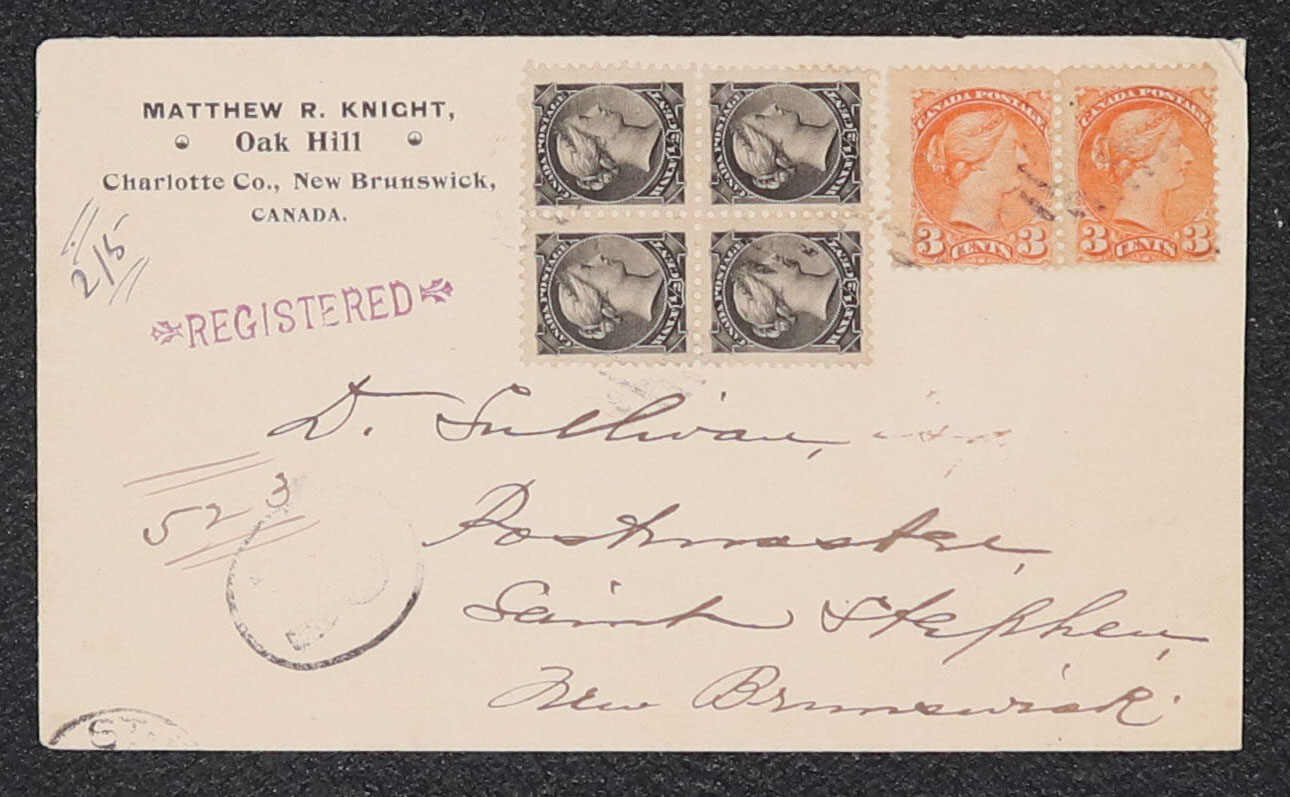 MATTHEW R. KNIGHT,
Oak Hill
Charlotte Co., New Brunswick,
CANADA.
2/5
REGISTERED
CANADA POSTAGE
HALF CENT
CANADA POSTAGE
HALF CENT
CANADA POSTAGE
HALF CENT
CANADA POSTAGE
HALF CENT
CANADA POSTAGE
3 CENTS 3
CANADA POSTAGE
3 CENTS 3
D. Sullivan,
523
Postmaster,
Saint Stephen,
New Brunswick.
ST